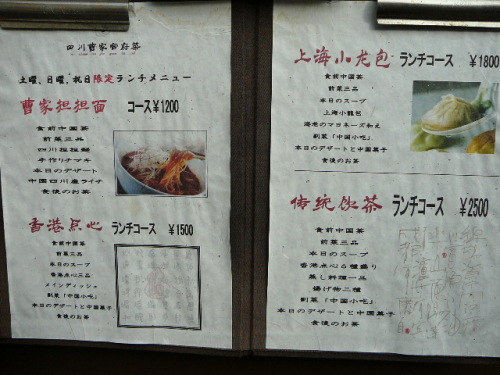 四川曹家官府菜
土曜、日曜、祝日限定ランチメニュー
曹家担担面 コース¥1200
食前中国茶
前菜三品
四川担担麺
手作りチマキ
本日のデザート
中国四川産ライチ
食後のお茶
香港点心 ランチコース ¥1500
食前中国茶
前菜三品
本日のスープ
香港点心三品
メインディッシュ
副菜「中国小吃」
本日のデザートと中国菓子
食後のお茶
上海小龙包 ランチコース ¥1800
食前中国茶
前菜三品
本日のスープ
上海小籠包
海老のマヨネーズ和え
副菜「中国小吃」
本日のデザートと中国菓子
食後のお茶
传统饮茶 ランチコース ¥2500
食前中国茶
前菜三品
本日のスープ
香港点心6種盛り
蒸し料理一品
揚げ物二種
副菜「中国小吃」
本日のデザートと中国菓子
食後のお茶